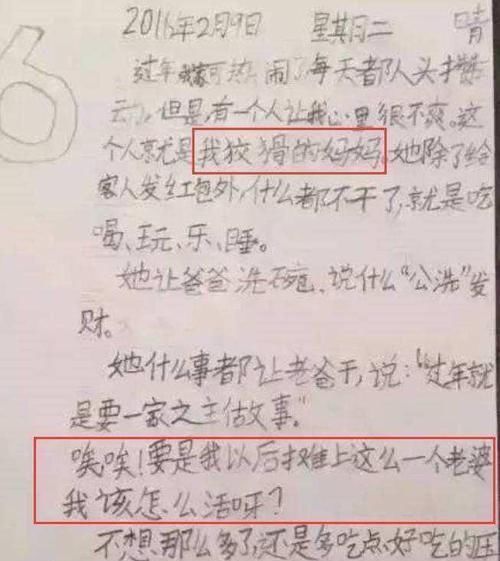 6
2016年2月9日 星其日二 晴
过年我家可热闹了每天都人头攒
动,但是,有一个人让我心里很不爽。这
个人就是我狡猾的妈妈,她除了给
客人发红包外,什么都不干了,就是吃
喝、玩、乐、睡。
她让爸爸洗碗、说什么“公洗”发
财。
她什么事都让老爸干,说:“过年就
是要一家之主做故事。”
唉唉!要是我以后摊上这么一个老婆
我该怎么活呀?
不想那么多了,还是多吃点好吃的压